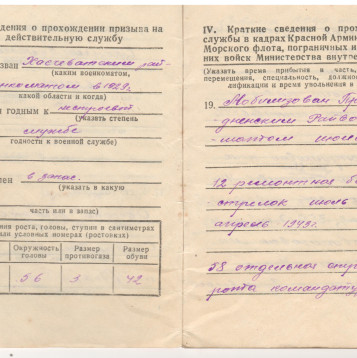 дения о прохождении призыва на
действительную службу
зван Хасиватским рай-
(каким военкоматом,
нкоматом в 1929 г.
какой области и когда)
н годным к нестроевой
(указать степень
службе
годности к военной службе)
лен в запас.
(указать в какую
часть или в запас)
ния роста, головы, ступни в сантиметрах
или условных номерах (ростовиза)
Окружность головы Размер противогаза Размер обуви
56 3 42
IV. Краткие сведения о прох
службы в кадрах Красной Арми
Морского флота, пограничных и
них войск Министерства внутре
(Указать время прибытия в часть,
перемещения, специальность, должнос
лификации и время увольнения в
19. Мобилизован
Райво
матом
12 ремонтное ба
стрелок июль
апрель 1943г.
58 отдельное
рота комендату